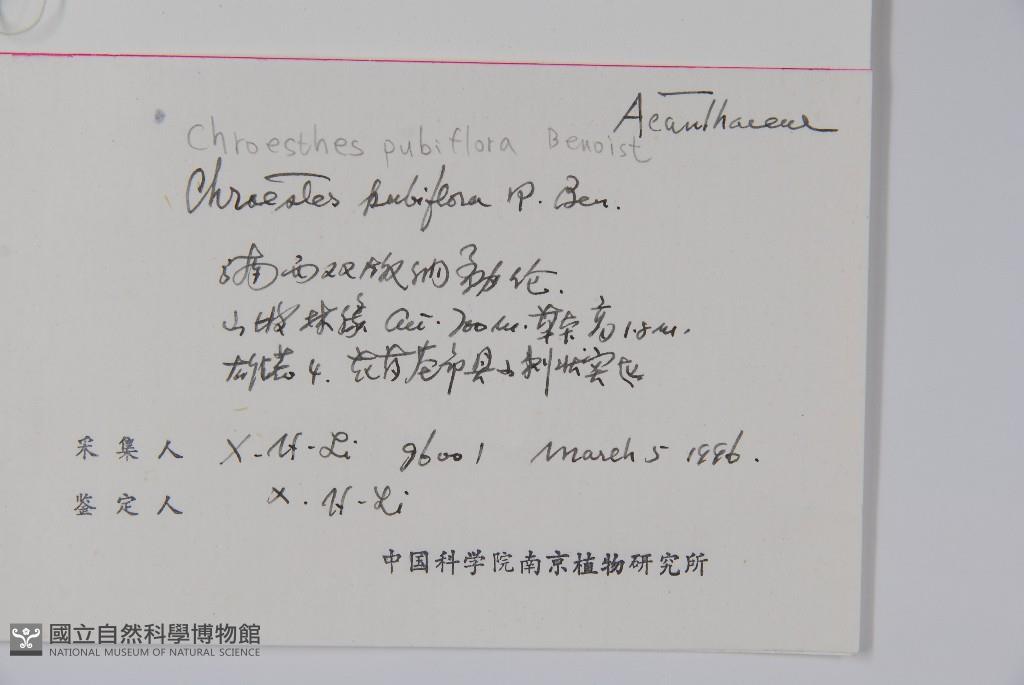 Acanthaceae
Chroesthes pubiflora Benoist
Chroestes pubiflora R. Ben.
西双版纳勐伦.
山坡林缘 alt. 700m. 高1.8m.
雄蕊4. 花
采集人 X.-H-Li 96001 March 5 1996.
鉴定人 X. H-Li
中国科学院南京植物研究所
國立自然科學博物館
NATIONAL MUSEUM OF NATURAL SCIENCE